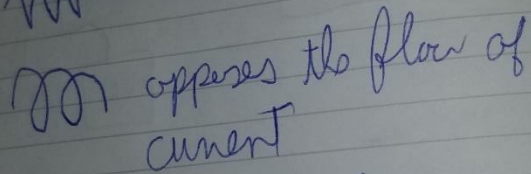 opposes the flow of
current